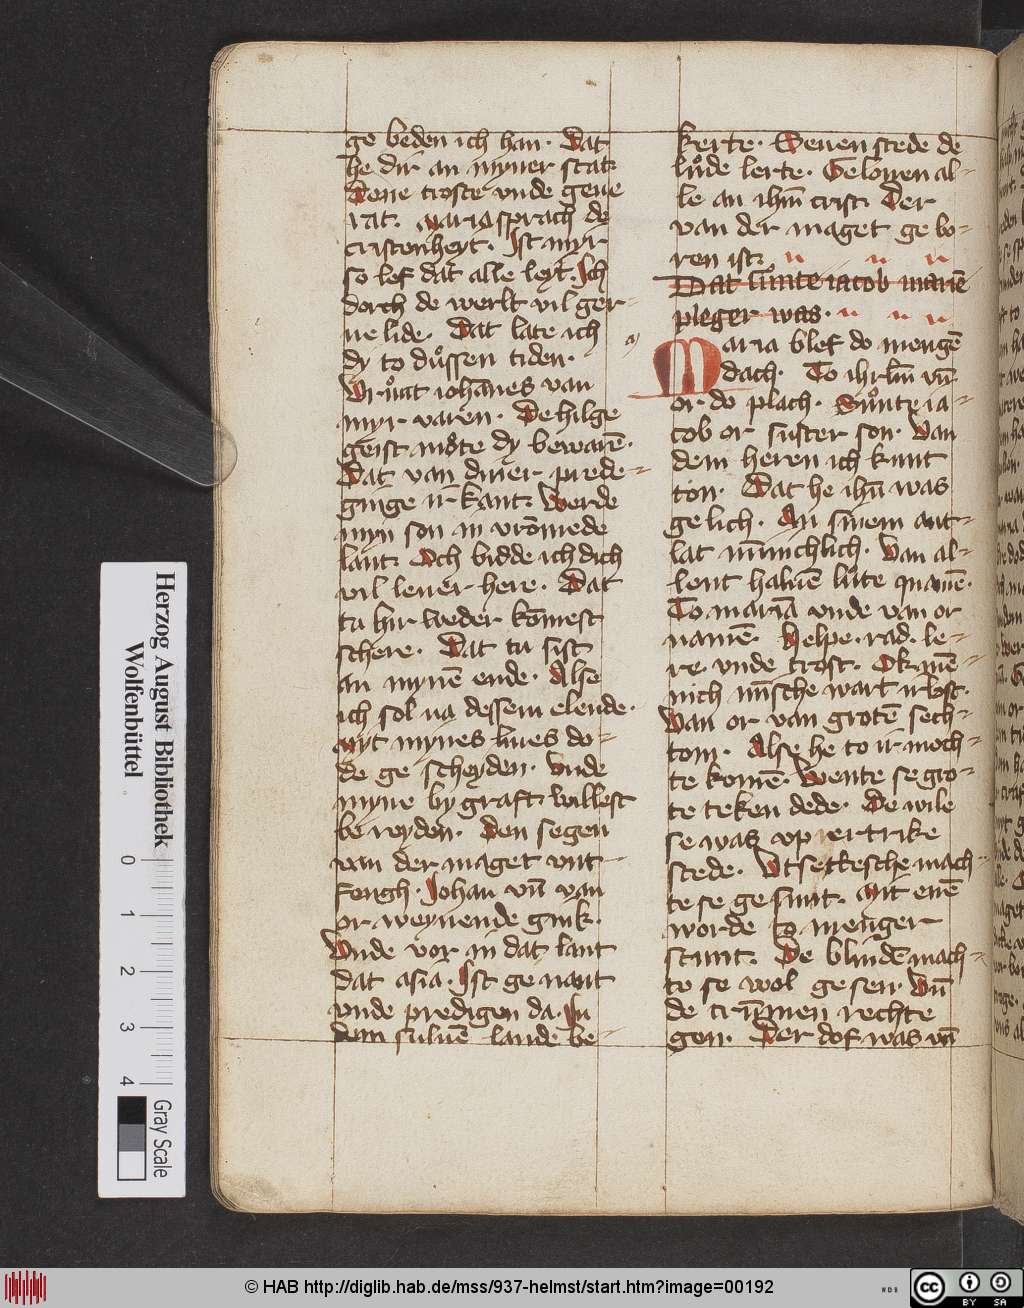 ge beden ich han. Dat
he dir an myner stat
Dene troste vnde gene
rat. Maria sprach de
cristenheyt. Ist myr
so lef dat alle leyt. Ich
dorch de werlt vil ger-
ne lide. Dat late ich
dy to duͦssen tiden.
Vruͦnt iohānes van
myr varen. De hilge
geist moͤte dy bewarē.
Dat van diner prede-
ginge ir kant. Werde
myn son in vrōmede
lant. Och bidde ich dich
vil leuer here. Dat
tu hir weder kōmest
schere. Dat tu sist
an mynē ende. Alse
ich sol na dessem elende.
Myt mynes liues do-
de ge scheyden. Vnde
myne by graft willest
be reyden. Den segen
van der maget vnt-
fengh. Iohan vn̄ van
or weynende gink.
Vnde vor in dat lant
dat asia. Ist ge nant
vnde predigen da. In
dem suluē lande be-
kerte. Wenen stede de
luͦde lerte. Gelouen al-
le an ihm̄ crist. Der
van der maget ge bo-
ren ist.
Dat sunte iacob mariē
pleger was.
a)
Maria blef do mengē
dach. To ihrlm̄ vn̄
or do plach. Suͦnte ia-
cob or suster son. Van
dem heren ich kunt
ton. Dat he ihū was
gelich. An sinem ant-
lat minnichlich. Van al-
lent haluē luͦte quamē.
To mariā vnde van or
namē. Helpe. rad. le-
re. vnde trost. Ok mē-
nich mīsche wart irlost.
Van or van grotē sech-
tom. Alse he to ir moch-
te komē. Wente se gro-
te teken dede. De wile
se was vp ertrike
stede. Vtsetkesche mach-
te se ge sunt. Myt enē
worde to menger
stunt. De blindē mach-
te se wol ge sen. Vn̄
de crūmen rechte
gen. Der dof was vn̄
Herzog August Bibliothek
Wolfenbüttel
0 1 2 3 4
Gray Scale
© HAB http://diglib.hab.de/mss/937-helmst/start.htm?image=00192
WDB
cc BY SA